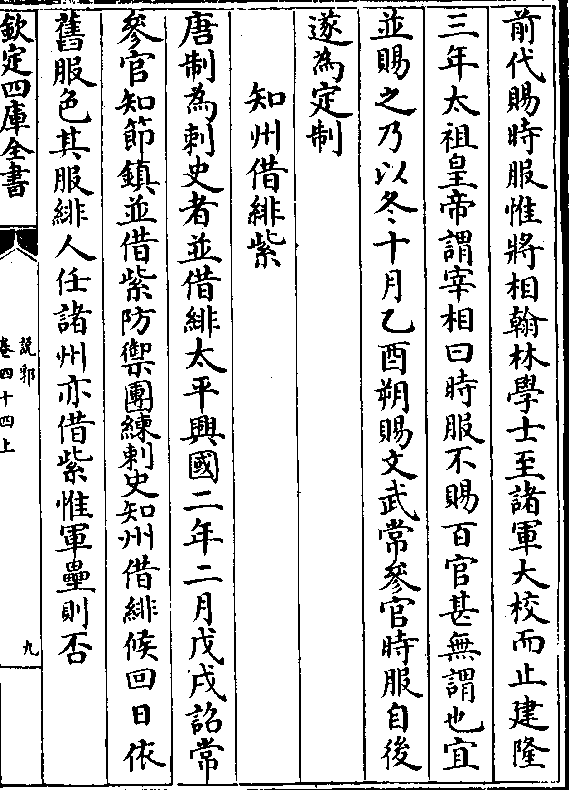 前代賜時服惟將相翰林學士至諸軍大校而止建隆
三年太祖皇帝謂宰相曰時服不賜百官甚無謂也宜
並賜之乃以冬十月乙酉朔賜文武常參官時服自後
遂為定制
知州借緋紫
唐制為刺史者並借緋太平興國二年二月戊戌詔常
參官知節鎮並借紫防禦團練刺史知州借緋候回日依
舊服色其服緋人任諸州亦借紫惟軍壘則否
欽定四庫全書
說郛
卷四十四上
九